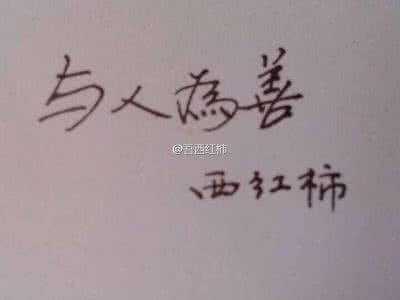 与人為善
@吾西红柿
西红柿